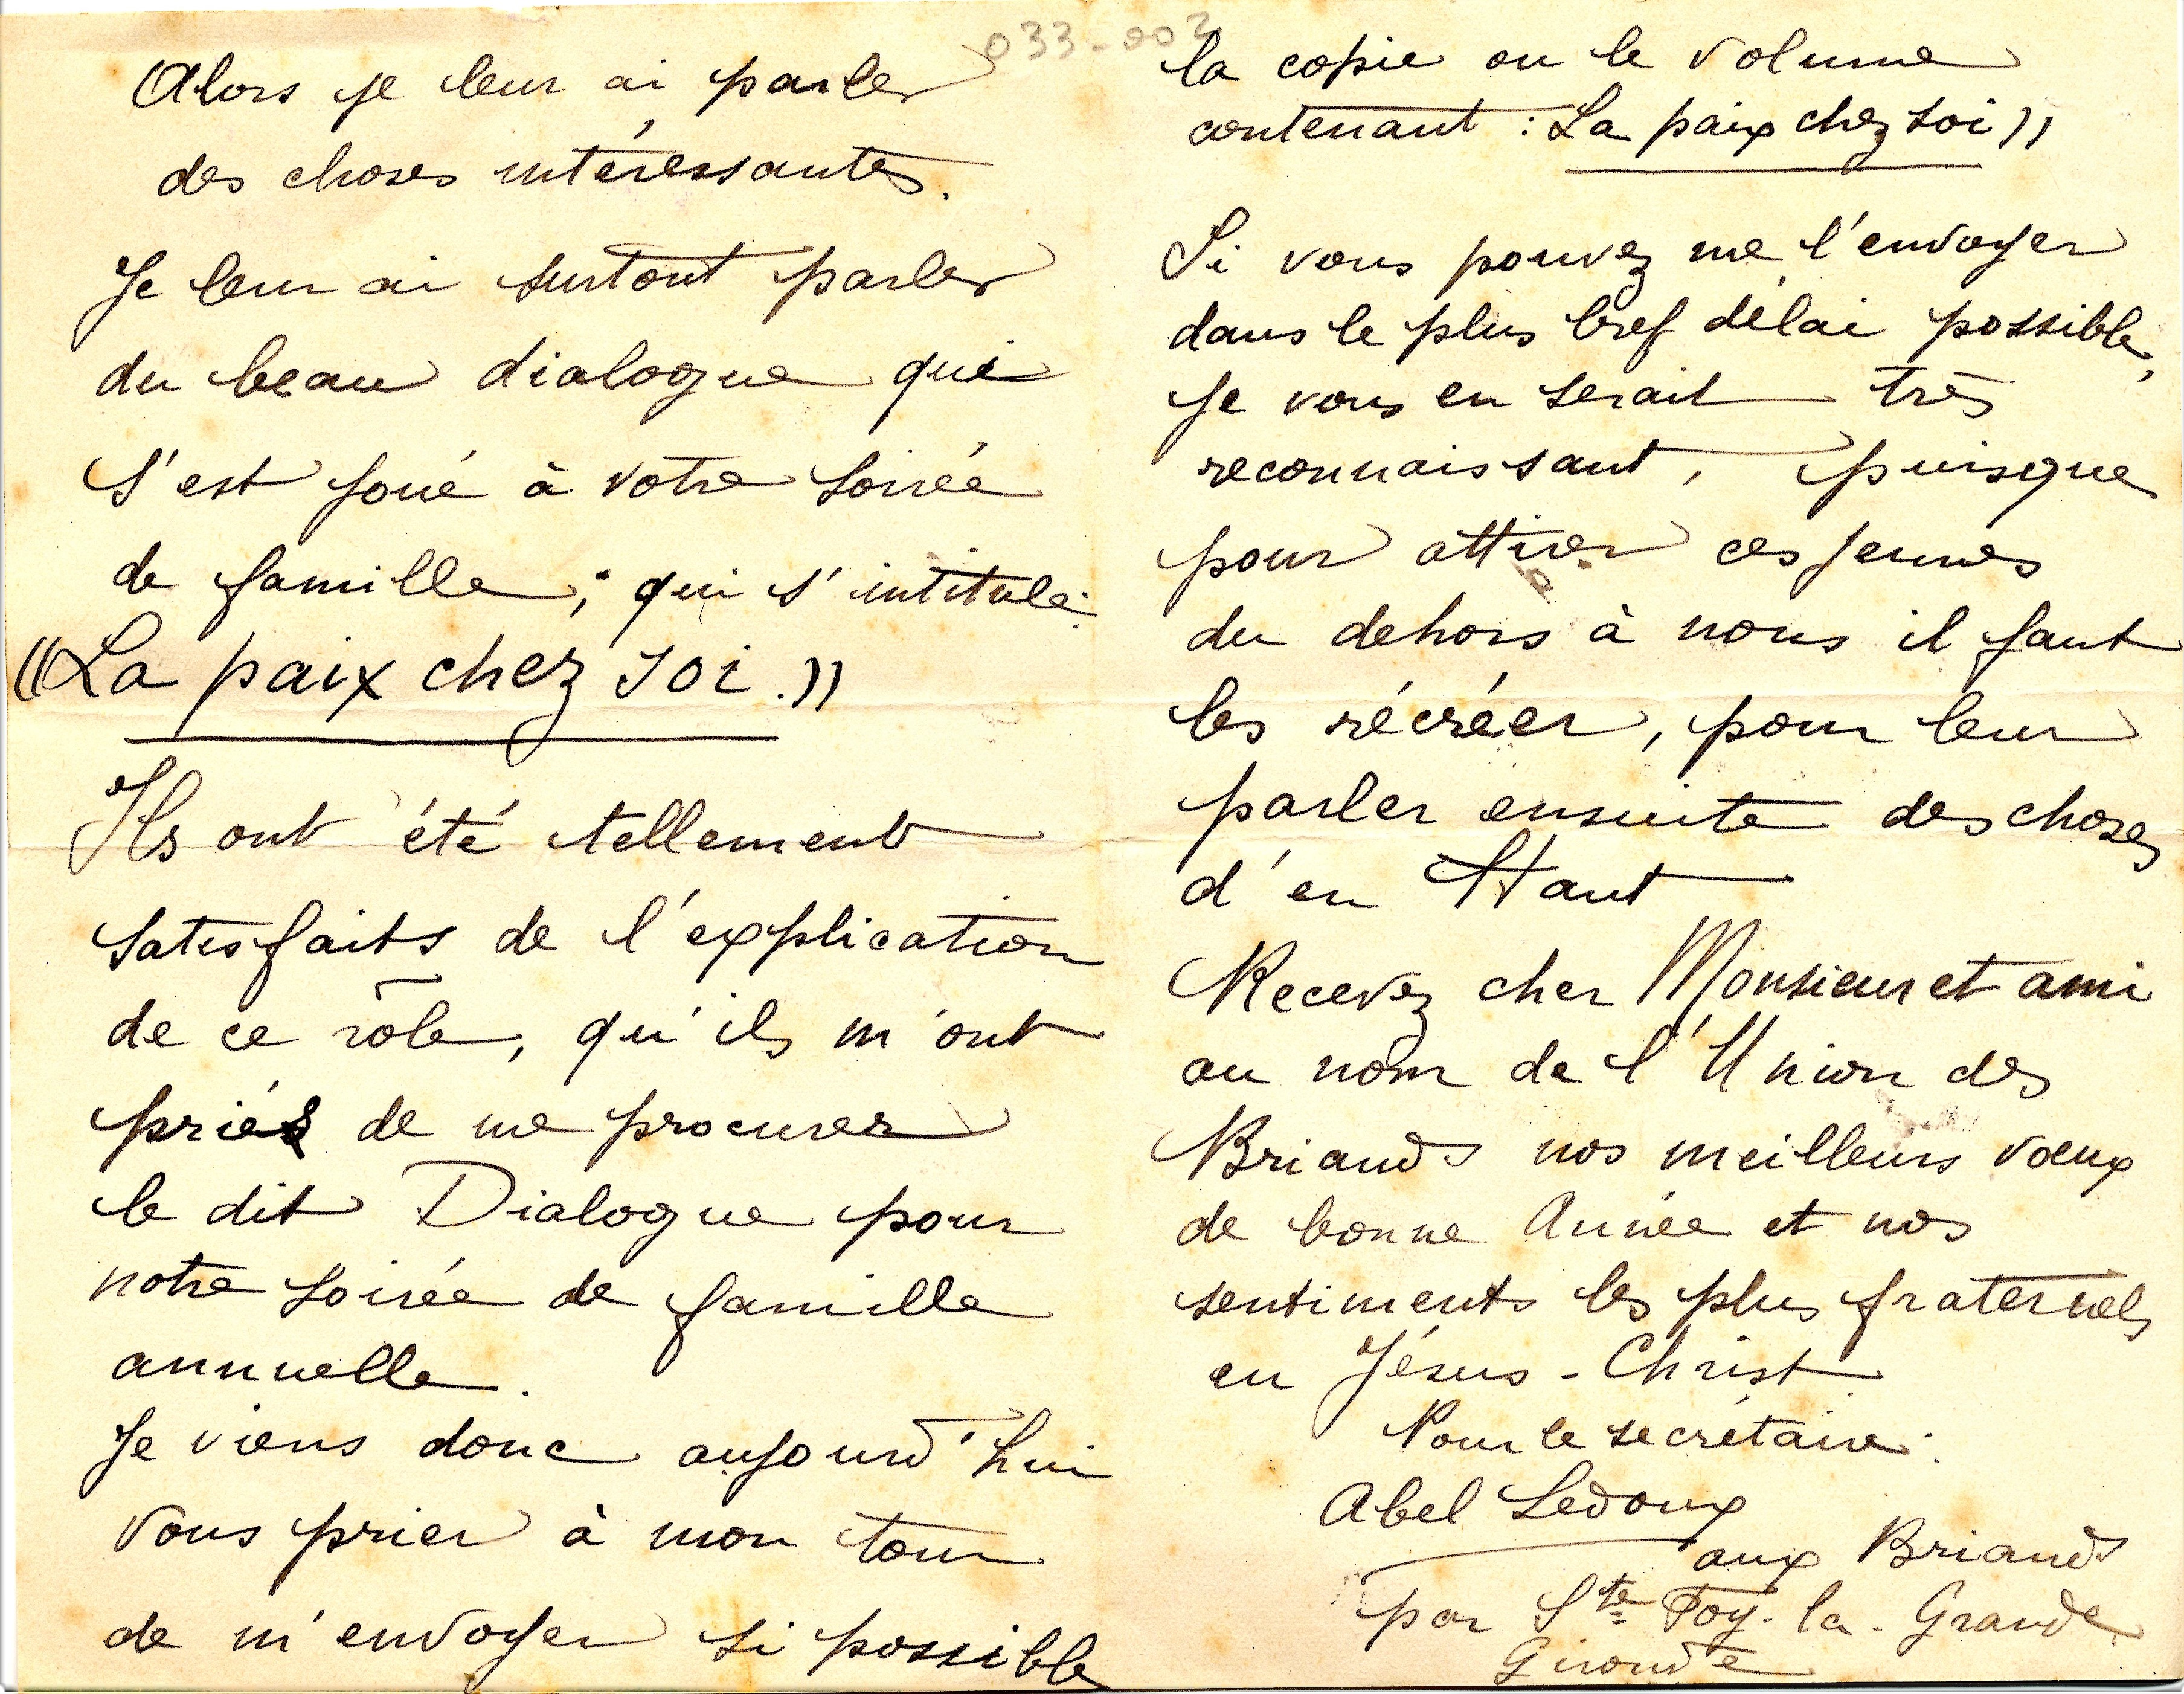 033-002
Alors je leur ai parler
des choses intéressantes.
Je leur ai surtout parler
du beau dialogue qui
s'est joué à votre soirée
de famille; qui s'intitule:
"La paix chez soi."
Ils ont été tellement
satisfaits de l'explication
de ce rôle, qu'ils m'ont
priés de me procurer
le dit Dialogue pour
notre soirée de famille
annuelle.
Je viens donc aujourd'hui
vous prier à mon tour
de m'envoyer si possible
la copie ou le volume
contenant : La paix chez soi"
Si vous pouvez me l'envoyer
dans le plus bref délai possible,
je vous en serait très
reconnaissant, puisque
pour attirer ces jeunes
du dehors à nous il faut
les récréer, pour leur
parler ensuite des choses
d'en Haut
Recevez cher Monsieur et ami
au nom de l'Union des
Briands nos meilleurs vœux
de bonne Année et nos
sentiments les plus fraternels
en Jésus-Christ.
Pour le secrétaire:
Abel Ledoux
aux Briands
par Ste Foy-la-Grande
Gironde